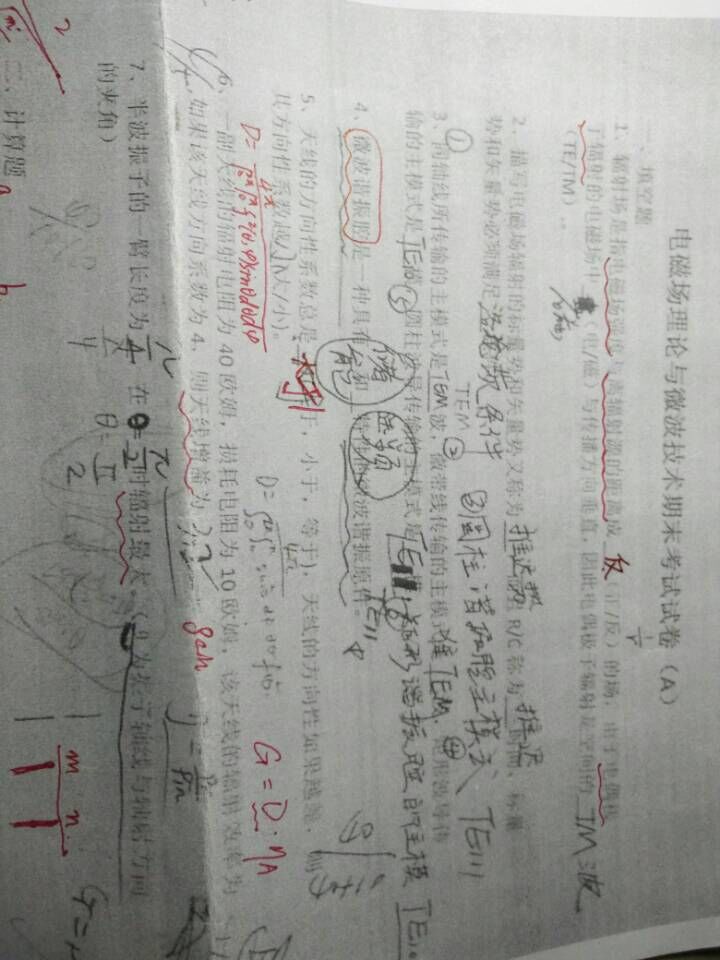 电磁场理论与微波技术期末考试试卷（A）
一、填空题
1/r
1、辐射场是指电磁场强度与离辐射源的距离成 反 （正/反）的场，由于电偶极
子辐射的电磁场中（电/磁）与传播方向垂直，因此电偶极子辐射是空间的 TM 波
（TE/TM）。
2、描写电磁场辐射的标量势和矢量势又称为 推迟势 R/C 称为 推迟 时间、标量
势和矢量势必须满足 洛伦茨条件
TEM ② ⑤圆柱谐振腔主模式 TE111
① ④
3、同轴线所传输的主模式是TEM波，微带线传输的主模式准TEM. 矩形波导传
输的主模式是 TE 模 ③ 圆柱波导传输的主模式是 TE 模，矩形谐振腔的主模 TE10
TE11
4、微波谐振腔是一种具有 储能 和 选频 特性的微波谐振原件。
5、天线的方向性系数总是 大于1 于，小于，等于），天线的方向性如果越差，则
其方向性系数越 小 （大/小）。
D= 4π/∫∫f²(θ,φ)sinθdθdφ D= 4π G = D·ηA
6、一副天线的辐射电阻为 40 欧姆，损耗电阻为 10 欧姆，该天线的辐射效率为
4/5 如果该天线方向系数为 4，则天线增益为 3.2 gain Pin
7、半波振子的一臂长度为 λ/4 在 θ=π/2 时辐射最大。（θ 为振子轴线与轴射方向
的夹角） λ/4 θ= π/2
G=
m n
2
二、计算题
a b